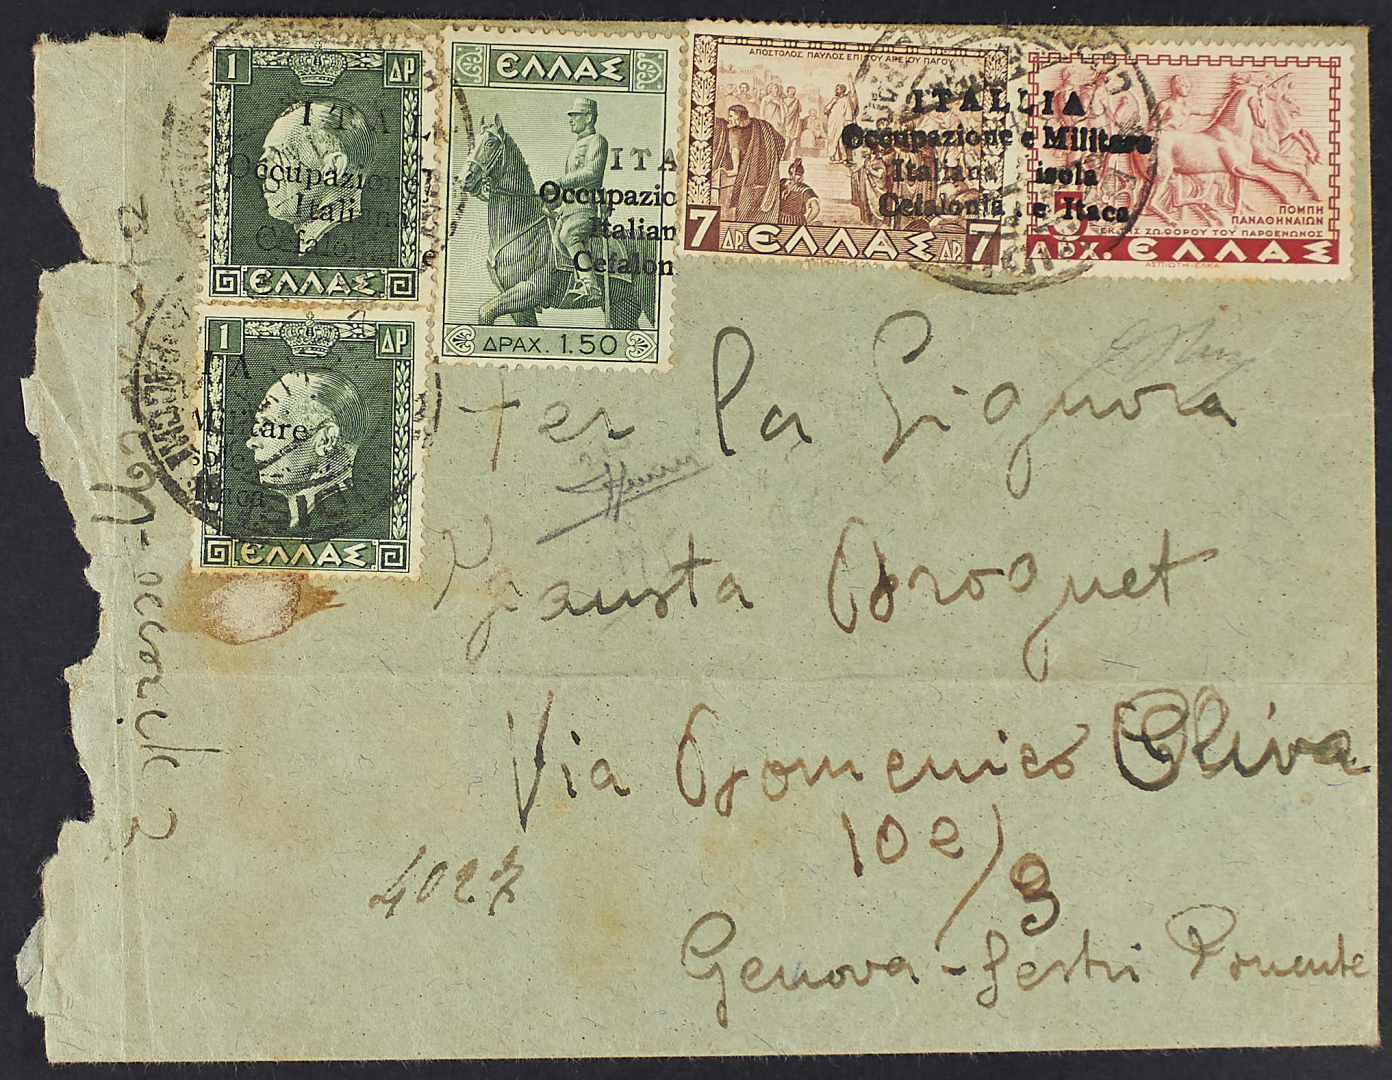 1 ΔΡ
ITAL
Occupazione
Italiana
Cefalon
ΕΛΛΑΣ
1 ΔΡ
IA
Militare
isole
Itaca
ΕΛΛΑΣ
ΕΛΛΑΣ
ITA
Occupazio
Italian
Cefalon
ΔΡΑΧ. 1.50
ΑΠΟΣΤΟΛΟΣ ΠΑΥΛΟΣ ΕΠΙ ΤΟΥ ΑΡΕΙΟΥ ΠΑΓΟΥ
ITALLIA
Occupazione e Militare
Italiana isola
Cefalonia e Itaca
7 ΔΡ ΕΛΛΑΣ ΔΡ. 7
ΠΟΜΠΗ
ΠΑΝΑΘΗΝΑΙΩΝ
ΕΚ ΤΗΣ ΖΩΦΟΡΟΥ ΤΟΥ ΠΑΡΘΕΝΩΝΟΣ
5
ΔΡΧ. ΕΛΛΑΣ
ΑΣΠΙΩΤΗ-ΕΛΚΑ
Per la Signora
Fausta Broquet
Via Domenico Oliva
10e/3
4027
Genova - Sestri Ponente